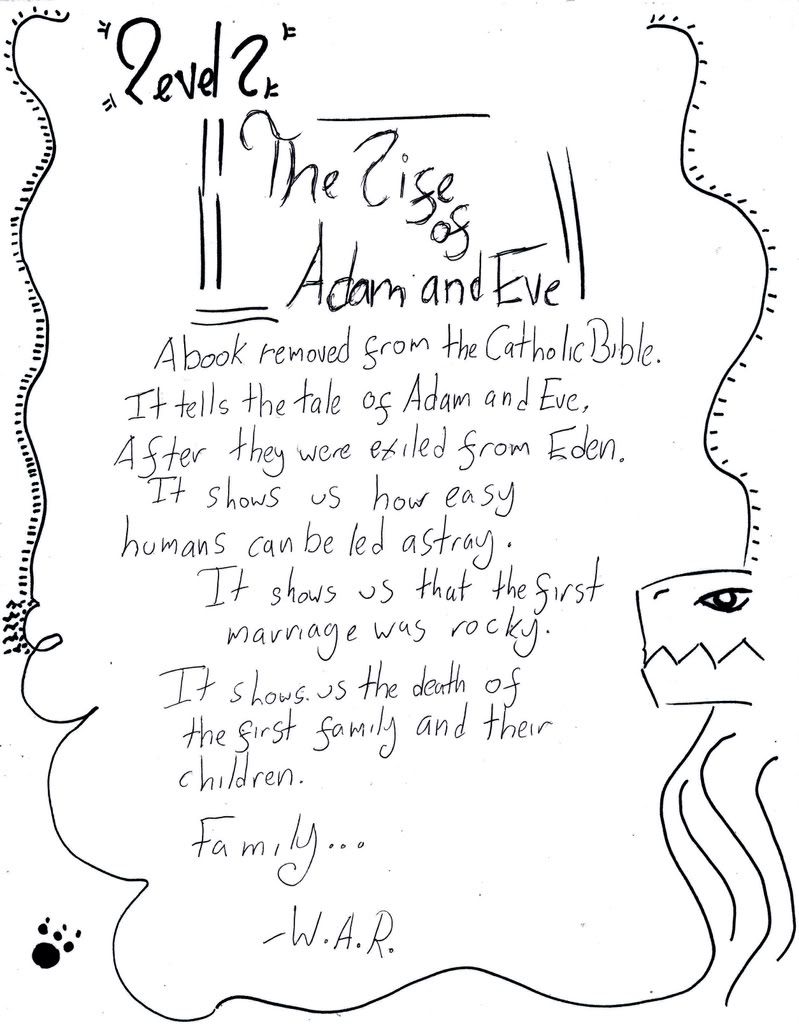 "Level 2"
The Life
of
Adam and Eve
A book removed from the Catholic Bible.
It tells the tale of Adam and Eve,
After they were exiled from Eden.
It shows us how easy
humans can be led astray.
It shows us that the first
marriage was rocky.
It shows us the death of
the first family and their
children.
Family...
-W.A.R.